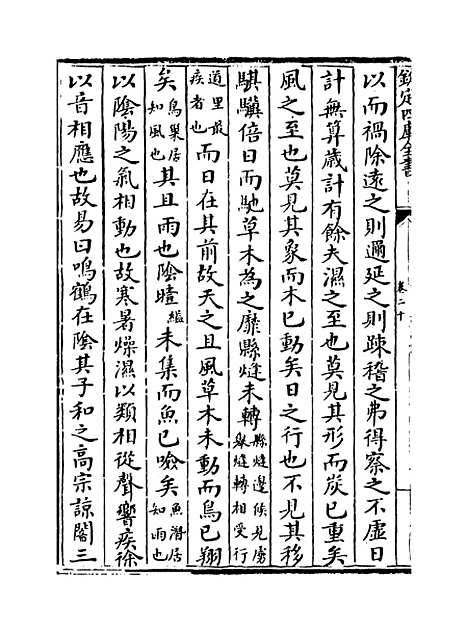 欽定四庫全書
卷二十
以而禍除遠之則邇延之則疎稽之弗得察之不虛日
計無算歲計有餘夫濕之至也莫見其形而炭已重矣
風之至也莫見其象而木已動矣日之行也不見其移
騏驥倍日而馳草木為之靡縣熢未轉縣熢邊候見虜舉熢轉相受行
道里最疾者也而日在其前故天之且風草木未動而鳥已翔
矣鳥巢居知風也其且雨也陰曀緼未集而魚已噞矣魚潛居知雨也
以陰陽之氣相動也故寒暑燥濕以類相從聲響疾徐
以音相應也故易曰鳴鶴在陰其子和之高宗諒闇三